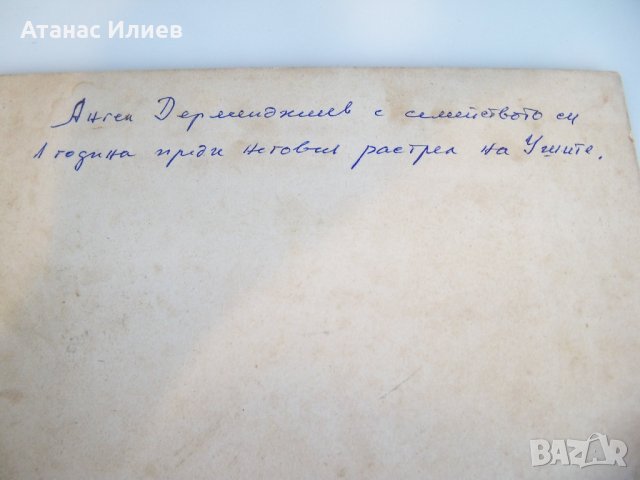 Атанас Илиев
Ангел Дерменджиев с семейството си
1 година преди неговия растрел на Ушите.
BAZAR